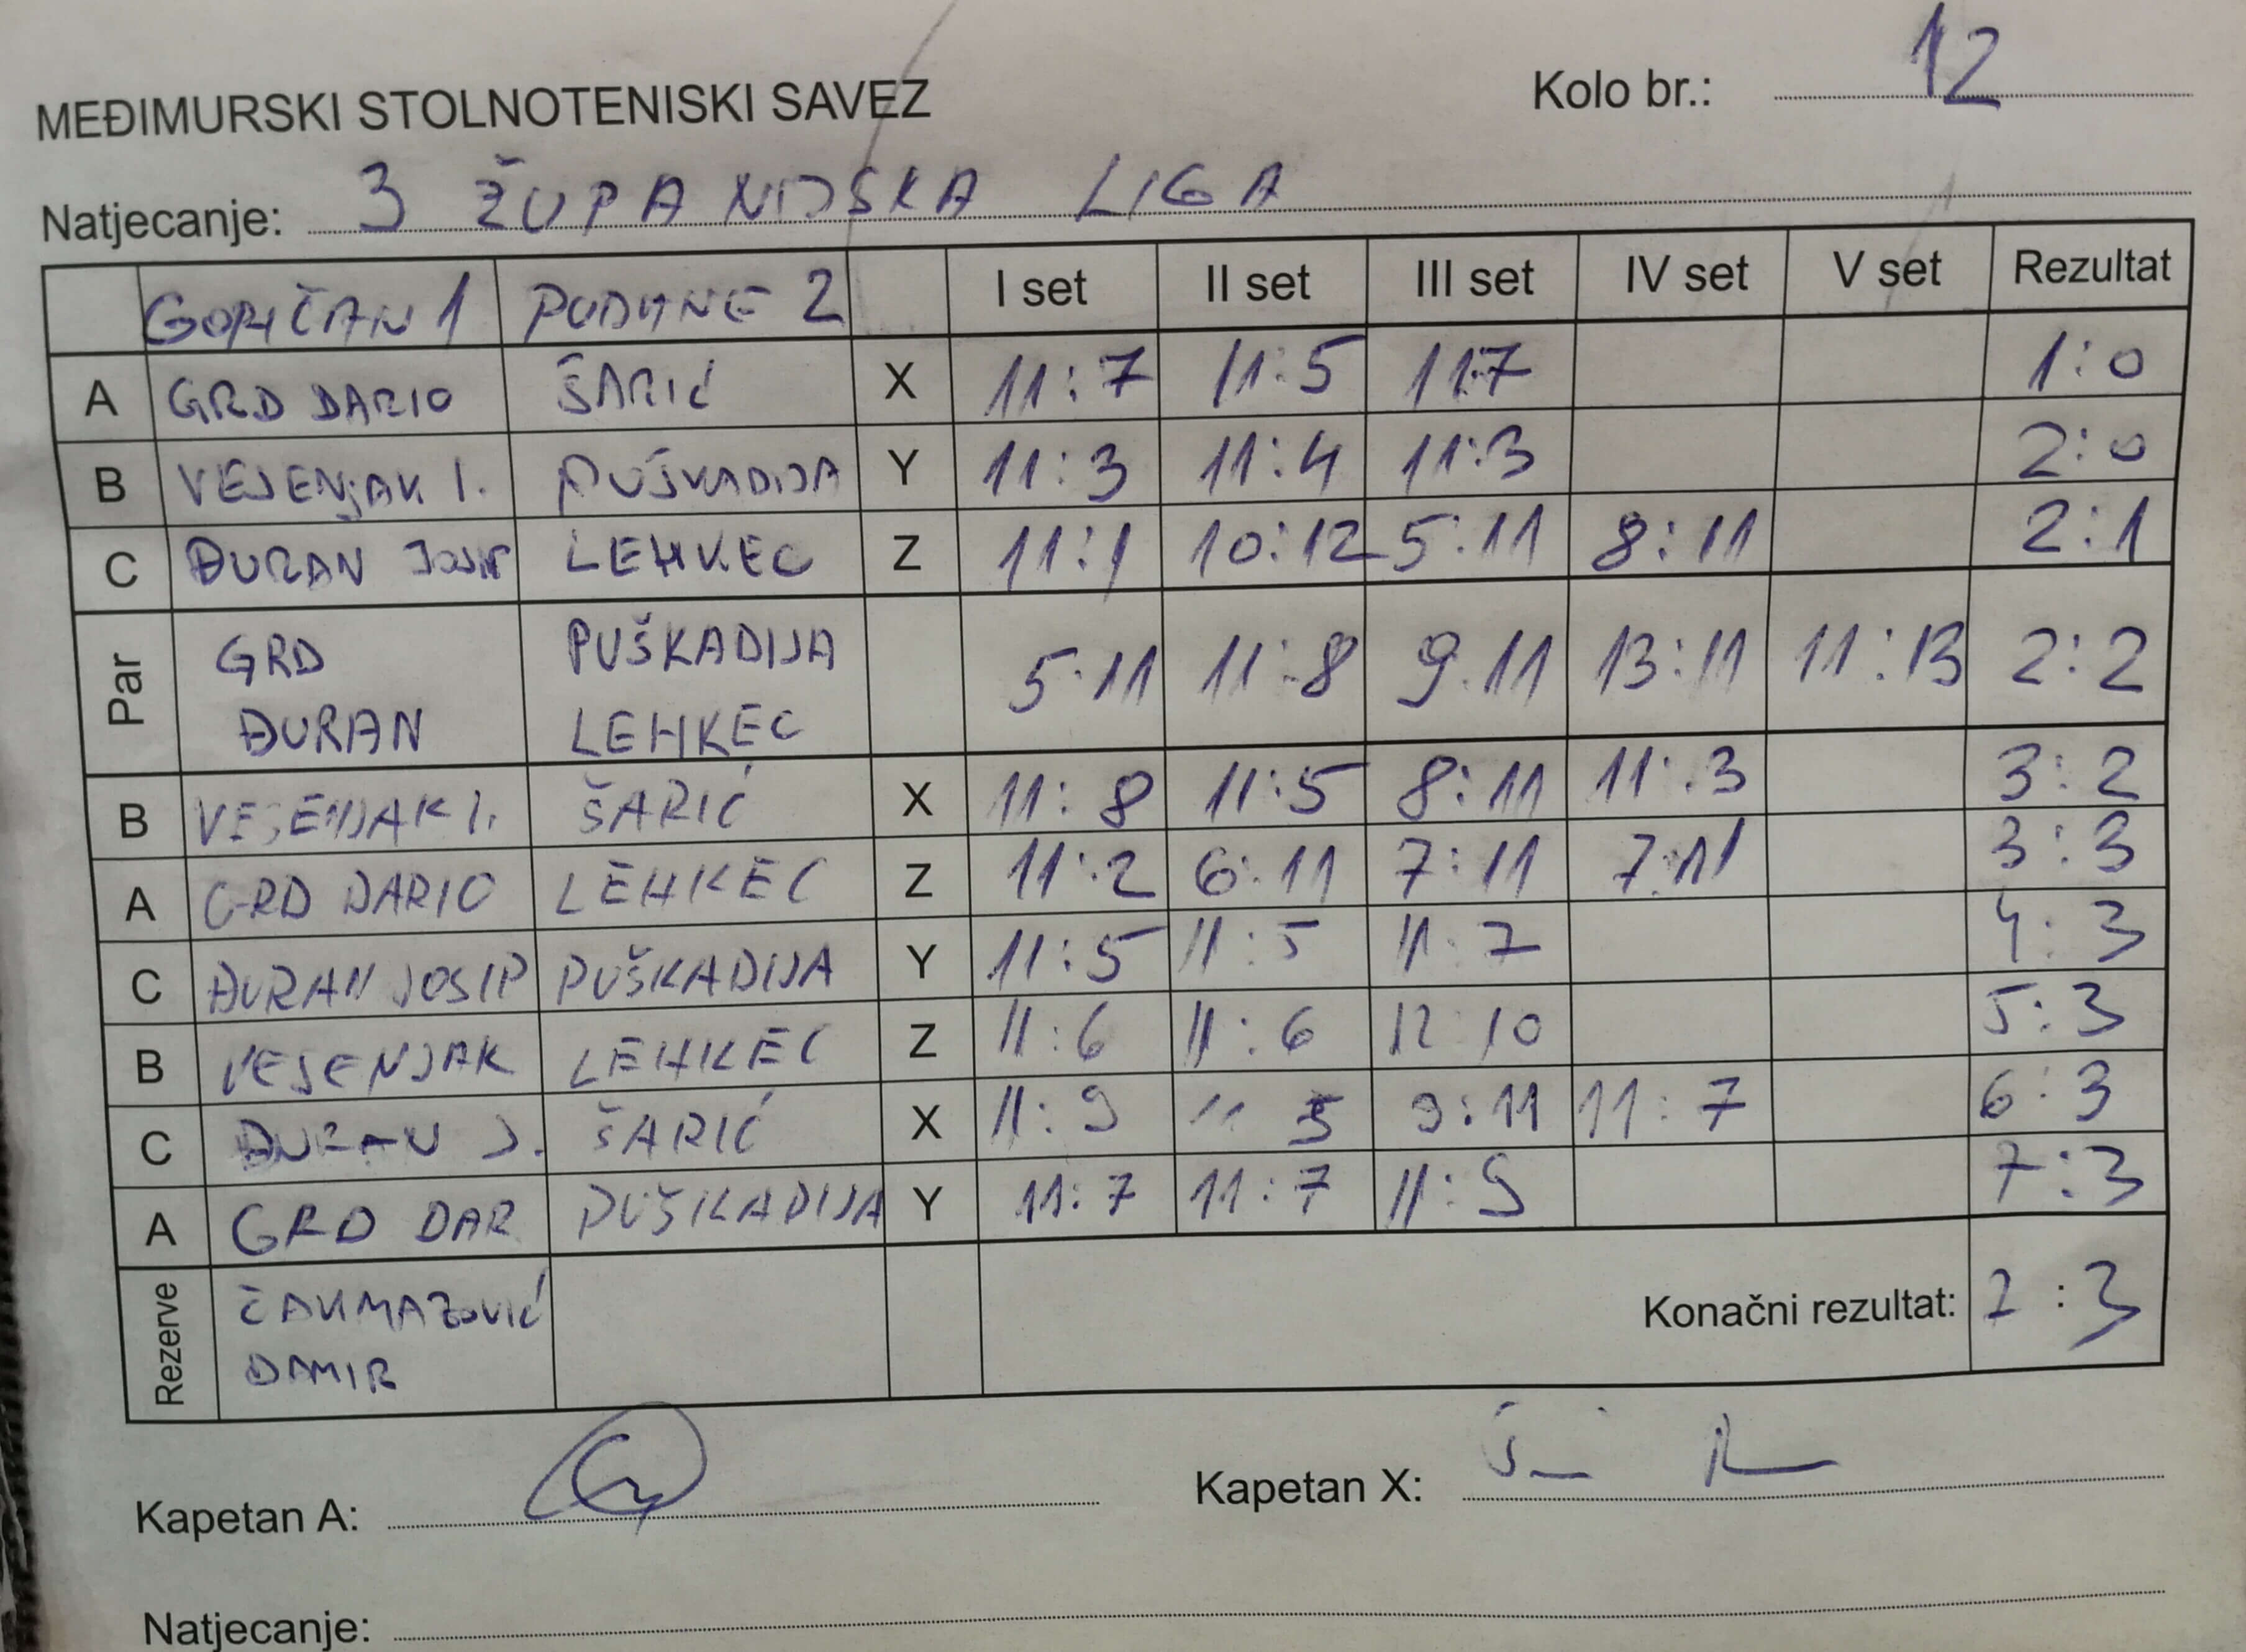 MEĐIMURSKI STOLNOTENISKI SAVEZ Kolo br.: 12
Natjecanje: 3 ŽUPANIJSKA LIGA
GORIČAN 1 PODUNE 2 I set II set III set IV set V set Rezultat
A GRD DARIO ŠARIĆ X 11:7 11:5 11:7 1:0
B VESENJAK I. PUŠKADIJA Y 11:3 11:4 11:3 2:0
C ĐURAN JOSIP LEHKEC Z 11:1 10:12 5:11 8:11 2:1
Par GRD PUŠKADIJA 5:11 11:8 9:11 13:11 11:13 2:2
ĐURAN LEHKEC
B VESENJAK I. ŠARIĆ X 11:8 11:5 8:11 11:3 3:2
A GRD DARIO LEHKEC Z 11:2 6:11 7:11 7:11 3:3
C ĐURAN JOSIP PUŠKADIJA Y 11:5 11:5 11:7 4:3
B VESENJAK LEHKEC Z 11:6 11:6 12:10 5:3
C ĐURAN J. ŠARIĆ X 11:9 11 5 9:11 11:7 6:3
A GRD DAR PUŠKADIJA Y 11:7 11:7 11:9 7:3
Rezerve ČAVMAZOVIĆ Konačni rezultat: 7:3
DAMIR
Kapetan A: Kapetan X:
Natjecanje: